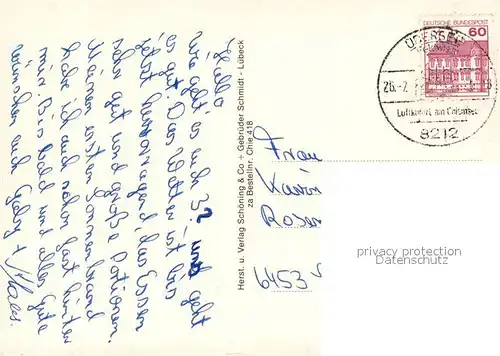 Hallo
wie geht's euch 3? und geht
es gut. Das Wetter ist bis
jetzt hervorragend, das Essen
sehr gut und große Portionen.
Meinen ersten Sonnenbrand
habe ich auch schon fast hinter
mir. Bis bald und alles Gute
wünschen euch Gaby +
Herst. u. Verlag Schöning & Co + Gebrüder Schmidt - Lübeck
za Bestellnr. Chie 418
DEUTSCHE BUNDESPOST
60
ÜBERSEE
26.-7.
Luftkurort am Chiemsee
8212
Frau
Karin
Roser
6453
privacy protection
Datenschutz